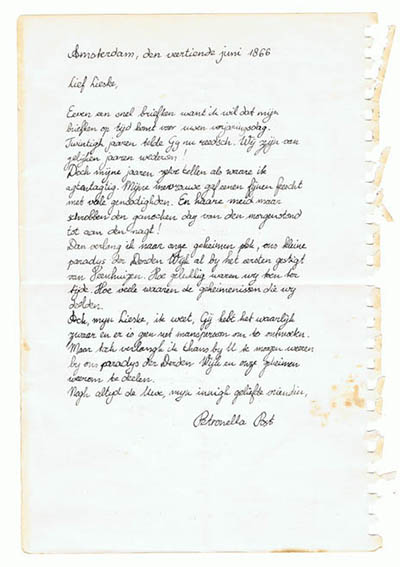 Amsterdam, den veertiende juni 1866
Lief Lieske,
Even een snel briefken want ik wil dat mijn
briefken op tijd komt voor uwen verjaringsdag.
Twintigh jaaren telde Gy nu reedsch. Wy zyn van
gelijken jaaren wederom!
Doch mijne jaaren tellen als waere ik
aghtentagtig. Mijne mevrouwe geeft eenen fijnen feeścht
met vele genoodighden. En haare meid maar
schrobben den ganschen dag van den morgenstond
tot aan den naght!
Dan verlang ik naar onze geheimen plek, ons kleine
paradys der Derden Wijk al by het eersten gestigt
van Veenhuizen. Hoe gelukkig waren wy toen ter
tyde. Hoe veele waaren de geheimenissen die wy
deelden.
Och, myn Lieske, ik weet, Gij hebt het waarlijk
zwaer en er is geen net manspersoon om te ontmoeten.
Maar toch verlangh ik thans by U te mogen weezen
by ons paradys der Derden Wijk en onze geheimen
weerom te deelen.
Nogh altyd de Uwe, myn innigh geliefde vriendin,
Petronella Post